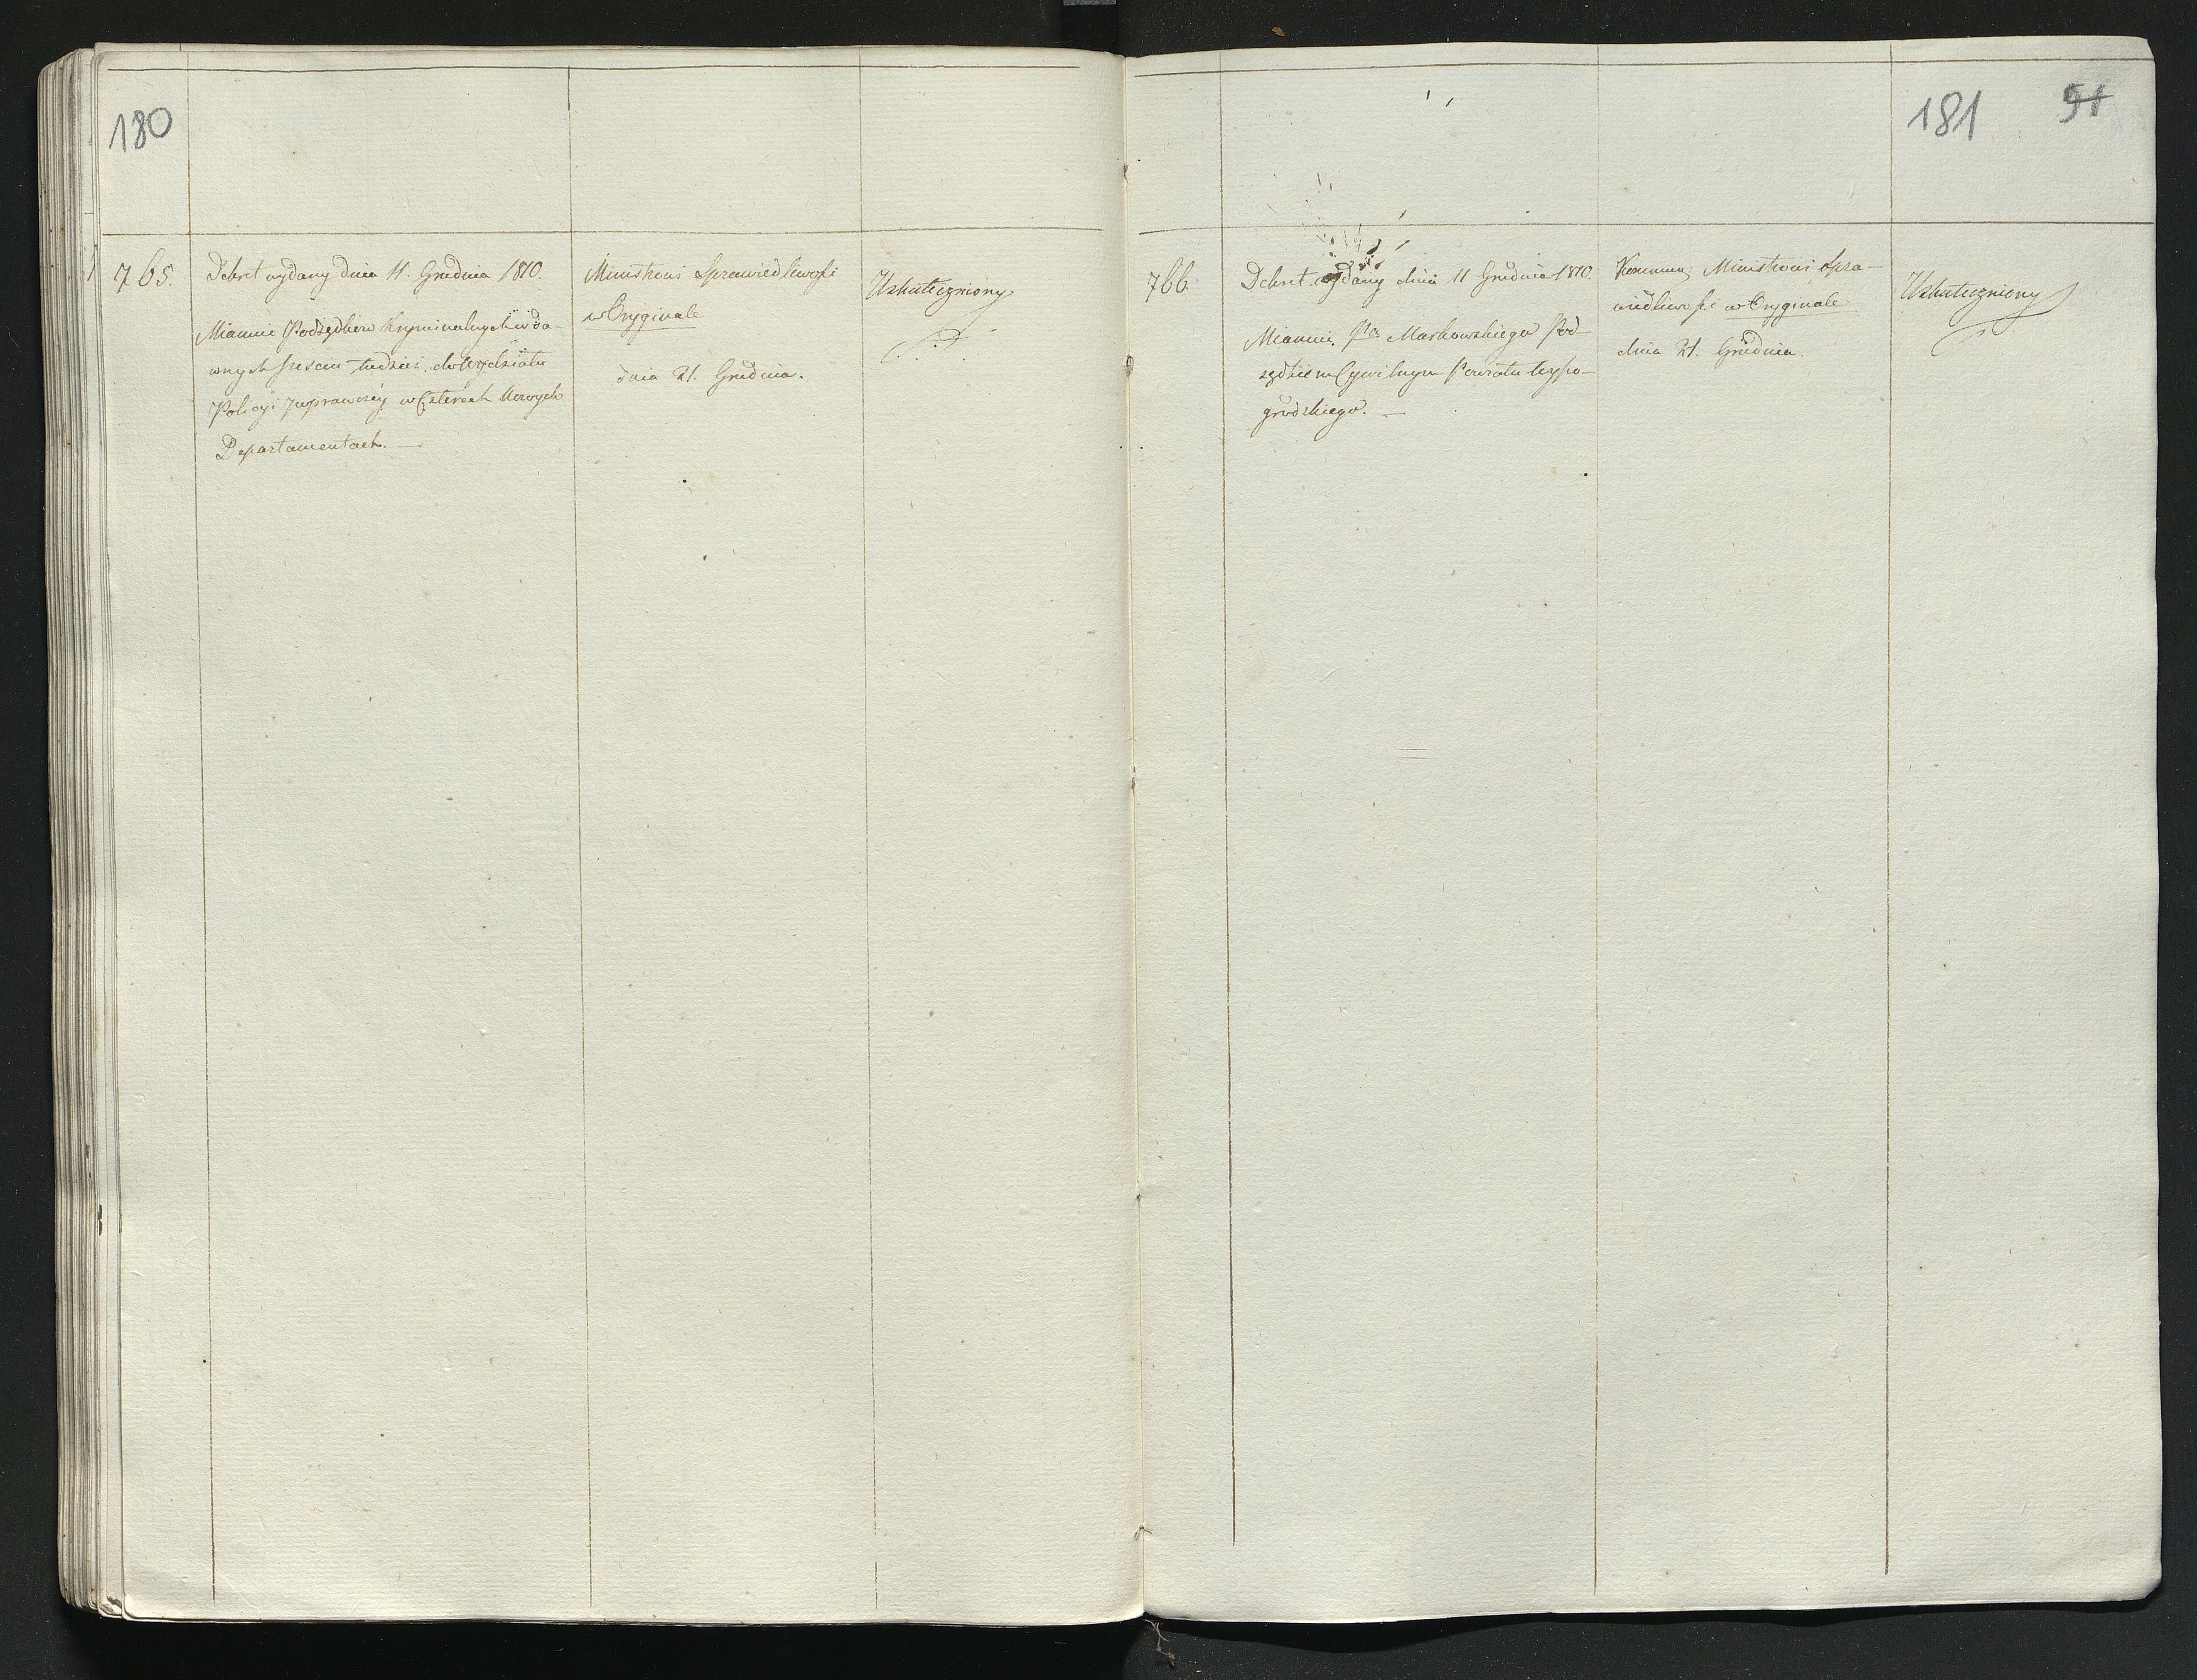 180
765.
Dekret wydany dnia 11. Grudnia 1810.
Mianuie Podsędków Kryminalnych w da-
wnych sześciu tudzież do Wydziału
Policyi Poprawczéy w Czterech Nowych
Departamentach. —
Ministrowi Sprawiedliwości
w Oryginale
dnia 21. Grudnia.
Uskuteczniony
181 91
766.
Dekret wydany dnia 11 Grudnia 1810.
Mianuie Pa Markowskiego Pod-
sędkiem Cywilnym Powiatu
gródzkiego. —
Ministrowi Spra-
wiedliwości w Oryginale
dnia 21. Grudnia.
Uskuteczniony